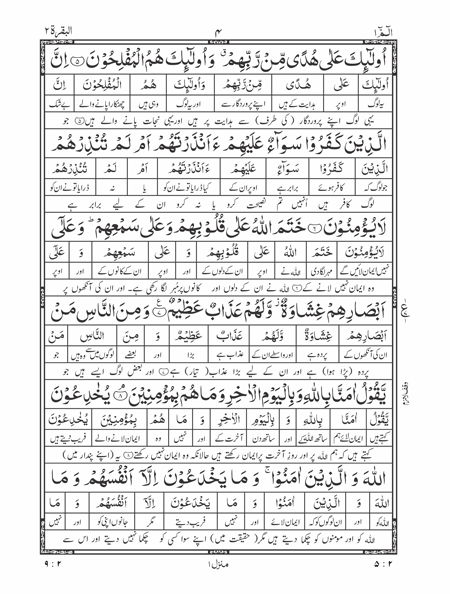 الٓمّٓ ١ ۴ البقرة ٢
اُولٰٓئِكَ عَلٰى هُدًى مِّنْ رَّبِّهِمْ ۙ وَاُولٰٓئِكَ هُمُ الْمُفْلِحُوْنَ ۝٥ اِنَّ
اُولٰٓئِكَ عَلٰى هُدًى مِّنْ رَّبِّهِمْ وَاُولٰٓئِكَ هُمُ الْمُفْلِحُوْنَ اِنَّ
یہ لوگ اوپر ہدایت کے ہیں اپنے پروردگار سے اور یہ لوگ وہی ہیں چھٹکارا پانے والے بے شک
یہی لوگ اپنے پروردگار (کی طرف) سے ہدایت پر ہیں اور یہی نجات پانے والے ہیں ۝٥ جو
الَّذِيْنَ كَفَرُوْا سَوَآءٌ عَلَيْهِمْ ءَاَنْذَرْتَهُمْ اَمْ لَمْ تُنْذِرْهُمْ
الَّذِيْنَ كَفَرُوْا سَوَآءٌ عَلَيْهِمْ ءَاَنْذَرْتَهُمْ اَمْ لَمْ تُنْذِرْهُمْ
جو لوگ کہ کافر ہوئے برابر ہے اوپر ان کے کیا ڈرایا تو نے ان کو یا نہ ڈرایا تو نے ان کو
لوگ کافر ہیں انہیں تم نصیحت کرو یا نہ کرو ان کے لیے برابر ہے
لَا يُؤْمِنُوْنَ ۝٦ خَتَمَ اللّٰهُ عَلٰى قُلُوْبِهِمْ وَعَلٰى سَمْعِهِمْ ؕ وَعَلٰٓى
لَا يُؤْمِنُوْنَ خَتَمَ اللّٰهُ عَلٰى قُلُوْبِهِمْ وَ عَلٰى سَمْعِهِمْ وَ عَلٰٓى
نہیں ایمان لائیں گے مہر لگا دی اللہ نے اوپر ان کے دلوں کے اور اوپر ان کے کانوں کے اور اوپر
وہ ایمان نہیں لانے کے ۝٦ اللہ نے ان کے دلوں اور کانوں پر مہر لگا رکھی ہے۔ اور ان کی آنکھوں پر
اَبْصَارِهِمْ غِشَاوَةٌ ؗ وَّلَهُمْ عَذَابٌ عَظِيْمٌ ۝٧ وَمِنَ النَّاسِ مَنْ
اَبْصَارِهِمْ غِشَاوَةٌ وَّلَهُمْ عَذَابٌ عَظِيْمٌ وَ مِنَ النَّاسِ مَنْ
ان کی آنکھوں کے پردہ ہے اور واسطے ان کے عذاب ہے بڑا اور بعضے لوگوں میں سے وہ ہیں جو
پردہ (پڑا ہوا) ہے اور ان کے لیے بڑا عذاب (تیار) ہے ۝٧ اور بعض لوگ ایسے ہیں جو
يَّقُوْلُ اٰمَنَّا بِاللّٰهِ وَبِالْيَوْمِ الْاٰخِرِ وَمَا هُمْ بِمُؤْمِنِيْنَ ۝٨ يُخٰدِعُوْنَ
يَّقُوْلُ اٰمَنَّا بِاللّٰهِ وَ بِالْيَوْمِ الْاٰخِرِ وَ مَا هُمْ بِمُؤْمِنِيْنَ يُخٰدِعُوْنَ
کہتے ہیں ایمان لائے ہم ساتھ اللہ کے اور ساتھ دن آخرت کے اور نہیں وہ ایمان لانے والے فریب دیتے ہیں
کہتے ہیں کہ ہم اللہ پر اور روز آخرت پر ایمان رکھتے ہیں حالانکہ وہ ایمان نہیں رکھتے ۝٨ یہ (اپنے پندار میں)
اللّٰهَ وَ الَّذِيْنَ اٰمَنُوْا ۚ وَ مَا يَخْدَعُوْنَ اِلَّآ اَنْفُسَهُمْ وَ مَا
اللّٰهَ وَ الَّذِيْنَ اٰمَنُوْا وَ مَا يَخْدَعُوْنَ اِلَّآ اَنْفُسَهُمْ وَ مَا
اللہ کو اور ان لوگوں کو کہ ایمان لائے اور نہیں فریب دیتے مگر جانوں اپنی کو اور نہیں
اللہ کو اور مومنوں کو چکما دیتے ہیں مگر (حقیقت میں) اپنے سوا کسی کو چکما نہیں دیتے اور اس سے
٥ : ٢ منزل ١ ٩ : ٢